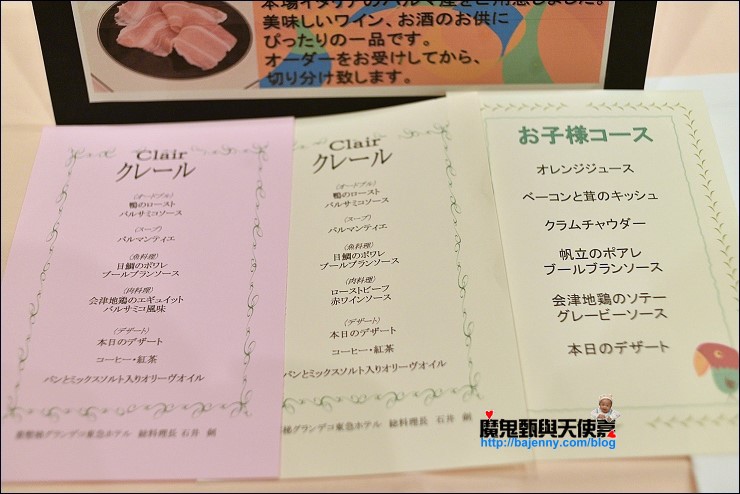 美味しいワイン、お酒のお供に
ぴったりの一品です。
オーダーをお受けしてから、
切り分け致します。
Clair
クレール
(オードブル)
鴨のロースト
バルサミコソース
(スープ)
パルマンティエ
(魚料理)
目鯛のポワレ
ブールブランソース
(肉料理)
会津地鶏のエギュイット
バルサミコ風味
(デザート)
本日のデザート
コーヒー・紅茶
パンとミックスソルト入りオリーヴオイル
グランデコ東急ホテル 総料理長 石井
Clair
クレール
(オードブル)
鴨のロースト
バルサミコソース
(スープ)
パルマンティエ
(魚料理)
目鯛のポワレ
ブールブランソース
(肉料理)
ローストビーフ
赤ワインソース
(デザート)
本日のデザート
コーヒー・紅茶
パンとミックスソルト入りオリーヴオイル
グランデコ東急ホテル 総料理長 石井
お子様コース
オレンジジュース
ベーコンと茸のキッシュ
クラムチャウダー
帆立のポアレ
ブールブランソース
会津地鶏のソテー
グレービーソース
本日のデザート
魔鬼甄與天使嘉
http://bajenny.com/blog